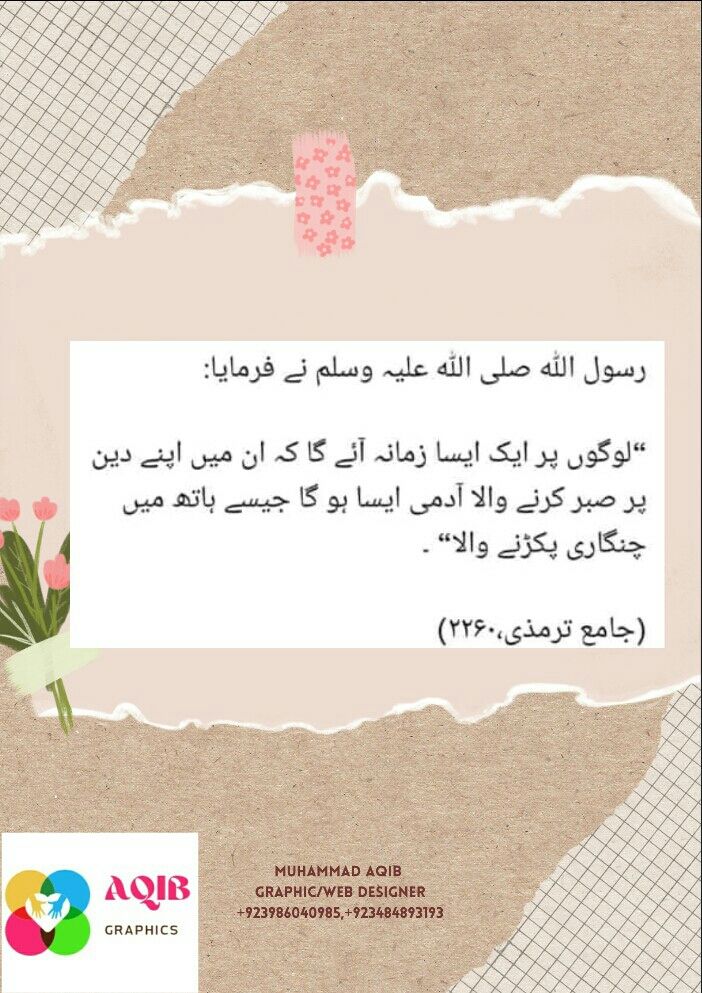 رسول اللہ صلی اللہ علیہ وسلم نے فرمایا:
“لوگوں پر ایک ایسا زمانہ آئے گا کہ ان میں اپنے دین
پر صبر کرنے والا آدمی ایسا ہو گا جیسے ہاتھ میں
چنگاری پکڑنے والا“ ۔
(جامع ترمذی،۲۲۶۰)
AQIB
GRAPHICS
MUHAMMAD AQIB
GRAPHIC/WEB DESIGNER
+923986040985,+923484893193